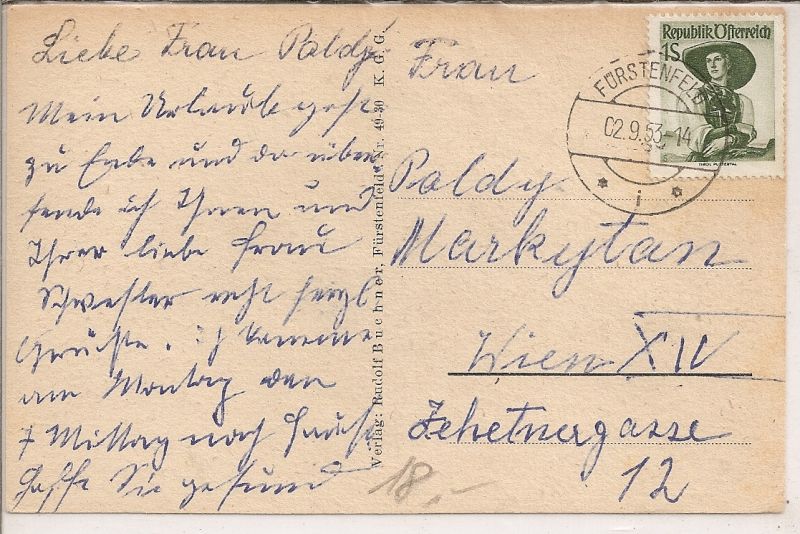 Liebe Frau Poldy!
Mein Urlaub geht
zu Ende und da über
sende ich Ihnen und
Ihrer liebe Frau
Schwester recht herzl
Grüße. ich komme
am Montag den
7 Mittag nach Hause
Hoffe Sie gesund
18.-
Verlag: Rudolf Buchner, Fürstenfeld. Nr. 49-30 K. G. G.
Republik Österreich
1S
FÜRSTENFELD
02.9.53-14
i
Frau
Poldy
Markytan
Wien XIV
Zehetnergasse
12